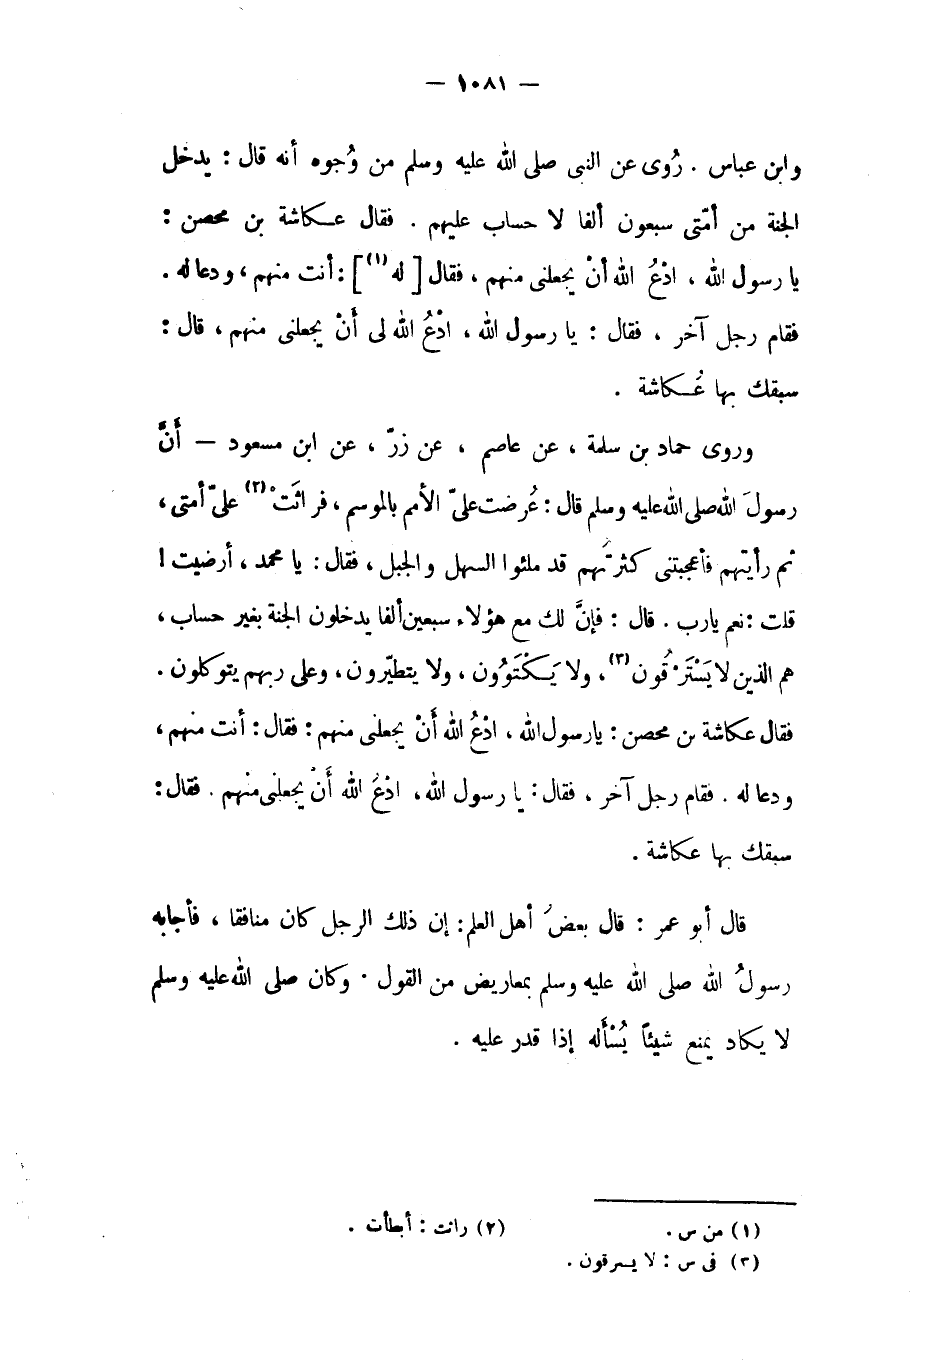 — ١٠٨١ —
وابن عباس . رُوى عن النبى صلى الله عليه وسلم من وُجوه أنه قال : يدخل
الجنة من أمّتى سبعون ألفا لا حساب عليهم . فقال عكاشة بن محصن :
يا رسول الله ، ادْعُ الله أنْ يجعلنى منهم ، فقال [ له (١) ] : أنت منهم ، ودعا له .
فقام رجل آخر ، فقال : يا رسول الله ، ادْعُ الله لى أَنْ يجعلنى منهم ، قال :
سبقك بها عُكاشة .
وروى حماد بن سلمة ، عن عاصم ، عن زرّ ، عن ابن مسعود — أَنَّ
رسولَ الله صلى الله عليه وسلم قال : عُرضت علىّ الأمم بالموسم ، فرائَتْ (٢) علىّ أمتى ،
ثم رأيتهم فأعجبتنى كثرتُهم قد ملئوا السهل والجبل ، فقال : يا محمد ، أرضيت !
قلت : نعم يارب . قال : فإنَّ لك مع هؤلاء سبعين ألفا يدخلون الجنة بغير حساب ،
هم الذين لا يَسْتَرْقُون (٣) ، ولا يَكْتَوُون ، ولا يتطيّرون ، وعلى ربهم يتوكلون .
فقال عكاشة بن محصن : يارسول الله ، ادْعُ الله أَنْ يجعلنى منهم : فقال : أنت منهم ،
ودعا له . فقام رجل آخر ، فقال : يا رسول الله ، ادْعُ الله أَنْ يجعلنى منهم . فقال :
سبقك بها عكاشة .
قال أبو عمر : قال بعضُ أهل العلم : إن ذلك الرجل كان منافقا ، فأجابه
رسولُ الله صلى الله عليه وسلم بمعاريض من القول . وكان صلى الله عليه وسلم
لا يكاد يمنع شيئاً يُسْأَله إذا قدر عليه .
(١) من س . (٢) رائت : أبطأت .
(٣) فى س : لا يسرقون .